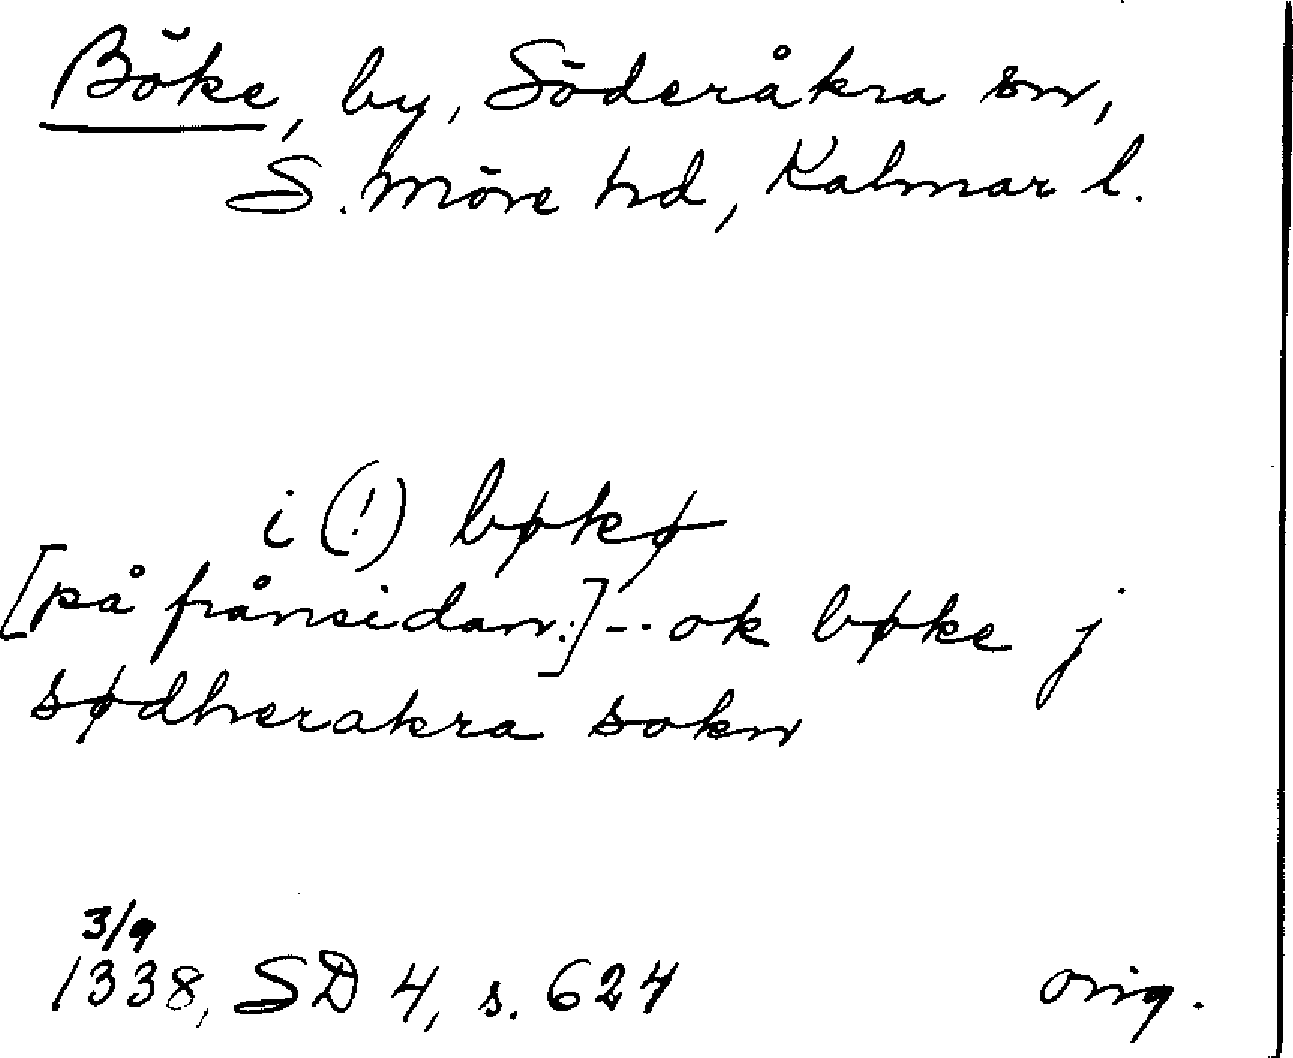 Böke, by, Söderåkra sn,
S. Möre hd, Kalmar l.
i (!) bøkø
[på frånsidan:] --- ok bøke j
sødherakra sokn
3/9
1338, SD 4, s. 624 orig.